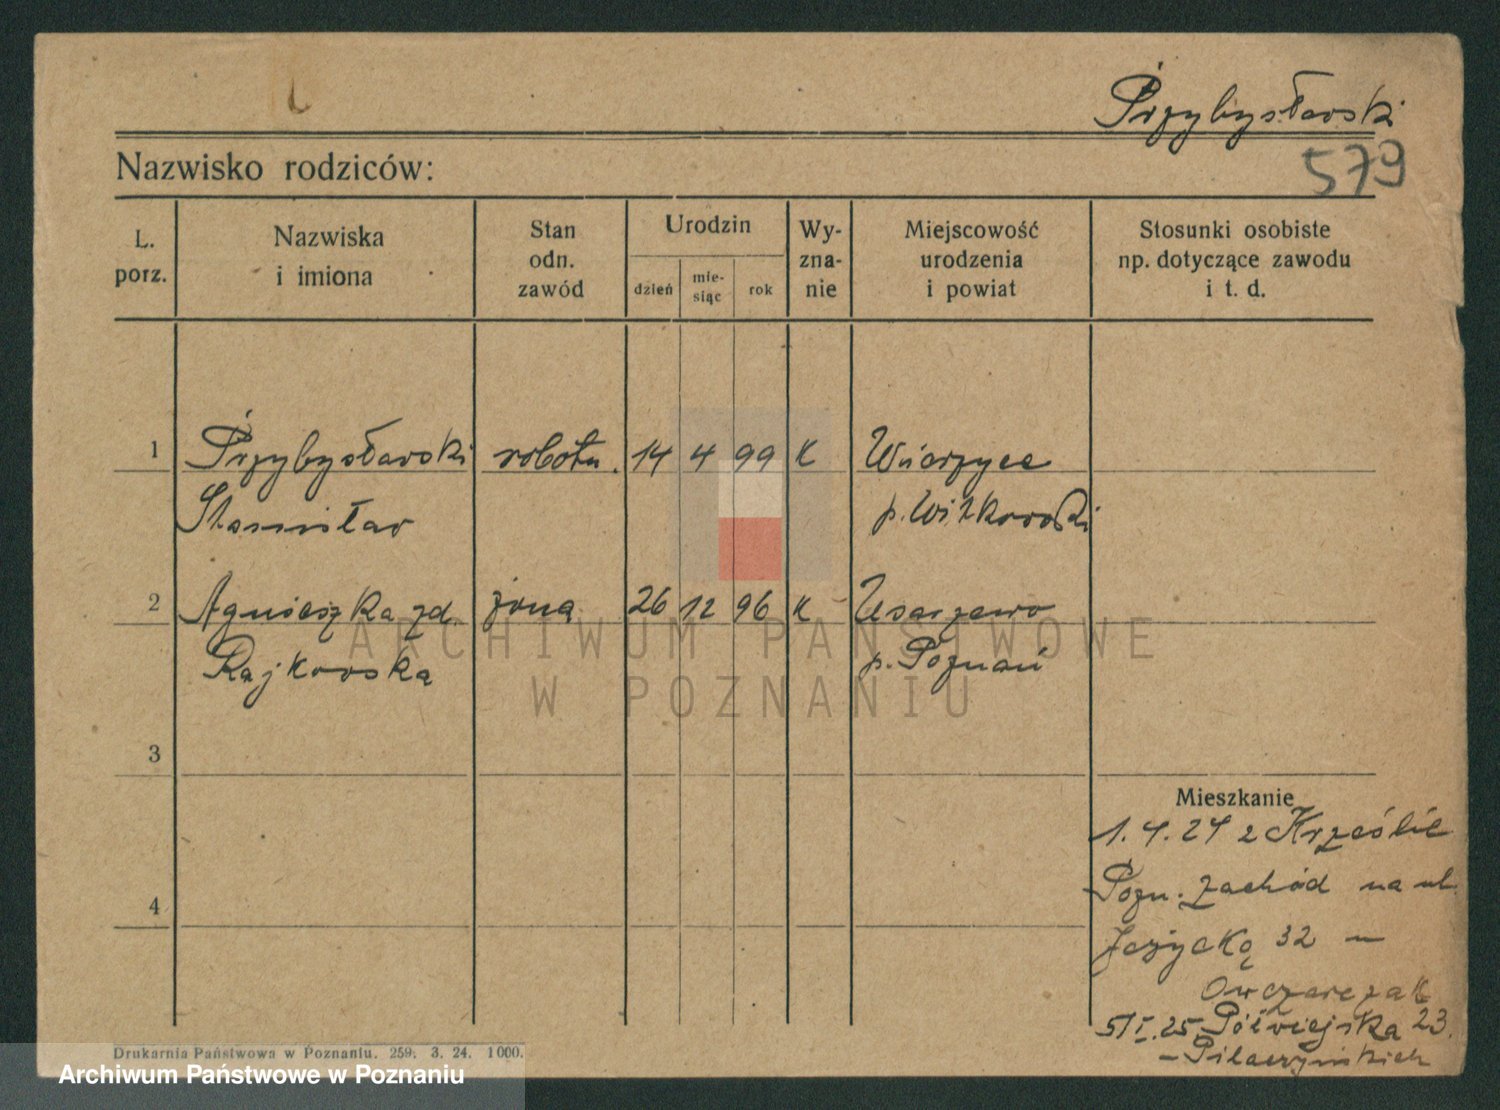 Przybysławski
579
Nazwisko rodziców:
L. porz.
Nazwiska i imiona
Stan odn. zawód
Urodzin
dzień
mie-siąc
rok
Wy-zna-nie
Miejscowość urodzenia i powiat
Stosunki osobiste np. dotyczące zawodu i t. d.
1 Przybysławski robotn. 14 4 99 K Wierzyce
Stanisław p. Witkowski
2 Agnieszka zd żona 26 12 96 K Usarzewo
Rajkowska p. Poznań
3
4
Mieszkanie
1.4.24 z Krześlic
Pozn. Zachód na ul.
Jeżycką 32 —
Owczarczak
5/I.25 Półwiejska 23.
— Pilaczyńskich
Drukarnia Państwowa w Poznaniu. 259. 3. 24. 1000.
ARCHIWUM PAŃSTWOWE
W POZNANIU
Archiwum Państwowe w Poznaniu